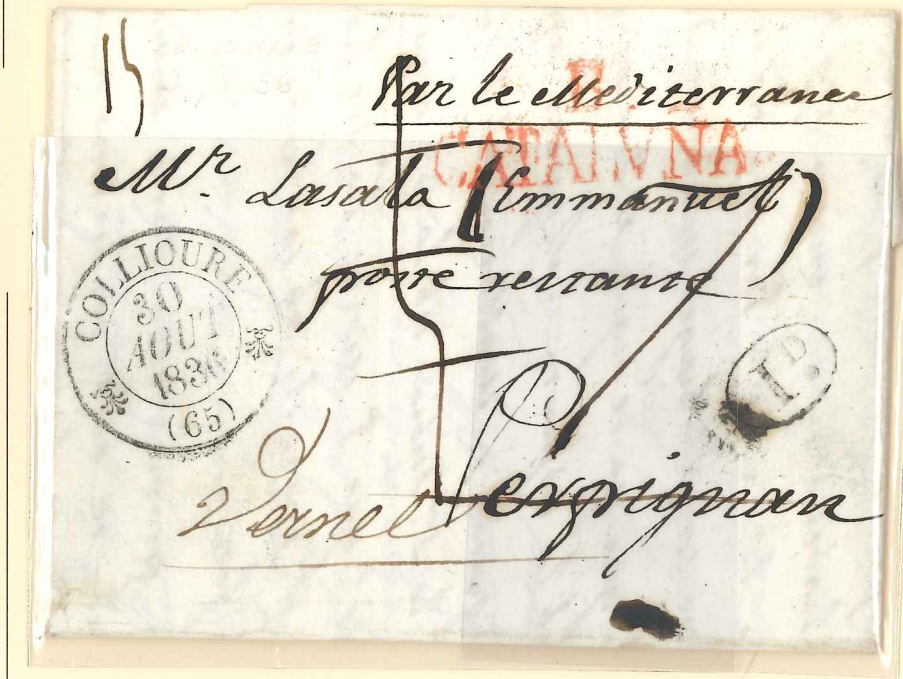 15
Par le Mediterranee
CATALUNA
Mr Lasala (Emmanuel)
poste restante
COLLIOURE
30
AOUT
1836
(65)
1D.
Perpignan
Vernet